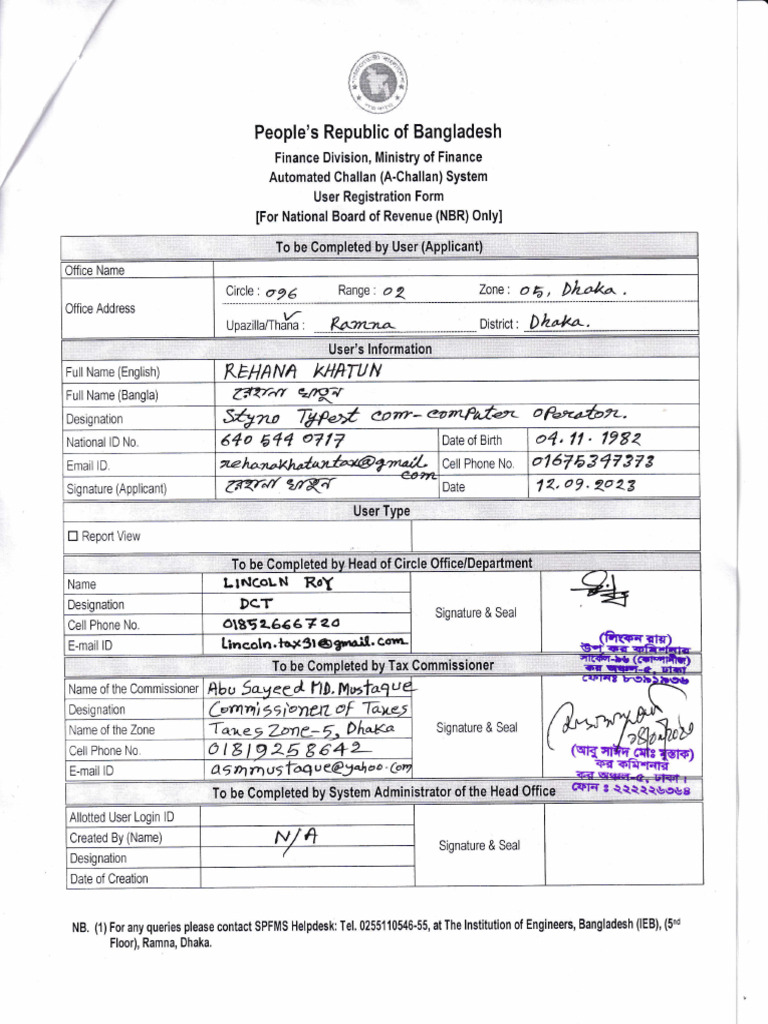 People's Republic of Bangladesh
Finance Division, Ministry of Finance
Automated Challan (A-Challan) System
User Registration Form
[For National Board of Revenue (NBR) Only]
To be Completed by User (Applicant)
Office Name
Office Address Circle : 096 Range : 02 Zone : 05, Dhaka.
Upazilla/Thana : Ramna District : Dhaka.
User's Information
Full Name (English) REHANA KHATUN
Full Name (Bangla) রেহানা খাতুন
Designation Styno Typest com-computer operator.
National ID No. 640 544 0717 Date of Birth 04.11.1982
Email ID. rehanakhatuntax@gmail.com Cell Phone No. 01675347373
Signature (Applicant) রেহানা খাতুন Date 12.09.2023
User Type
☐ Report View
To be Completed by Head of Circle Office/Department
Name LINCOLN ROY
Designation DCT
Cell Phone No. 01852666720
E-mail ID Lincoln.tax31@gmail.com
Signature & Seal
(লিংকন রায়)
উপ কর কমিশনার
সার্কেল-৯৬ (কোম্পানীজ)
কর অঞ্চল-৫, ঢাকা
ফোনঃ ৮৩৯১৯৩৬
To be Completed by Tax Commissioner
Name of the Commissioner Abu Sayeed MD. Mustaque
Designation Commissioner of Taxes
Name of the Zone Taxes Zone-5, Dhaka
Cell Phone No. 01819258642
E-mail ID asmmustaque@yahoo.com
Signature & Seal
(আবু সাঈদ মোঃ মুস্তাক)
কর কমিশনার
কর অঞ্চল-৫, ঢাকা।
ফোন : ২২২২২৬৩৬৪
To be Completed by System Administrator of the Head Office
Allotted User Login ID
Created By (Name) N/A
Designation
Date of Creation
Signature & Seal
NB. (1) For any queries please contact SPFMS Helpdesk: Tel. 0255110546-55, at The Institution of Engineers, Bangladesh (IEB), (5nd
Floor), Ramna, Dhaka.